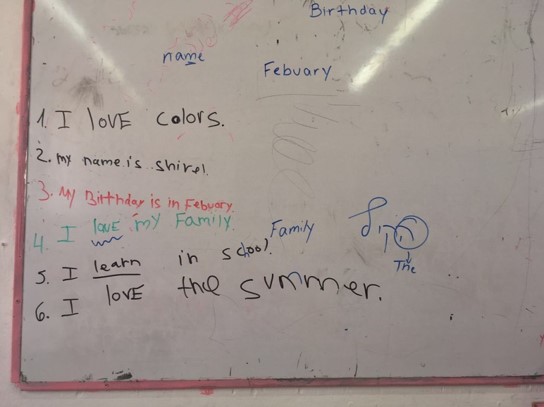 Birthday
name
Febuary
1. I lOVE colors.
2. my name is shirel
3. My Birthday is in Febuary.
4. I love my Family.
Family
5. I learn in school.
The
6. I lOVE the summer.